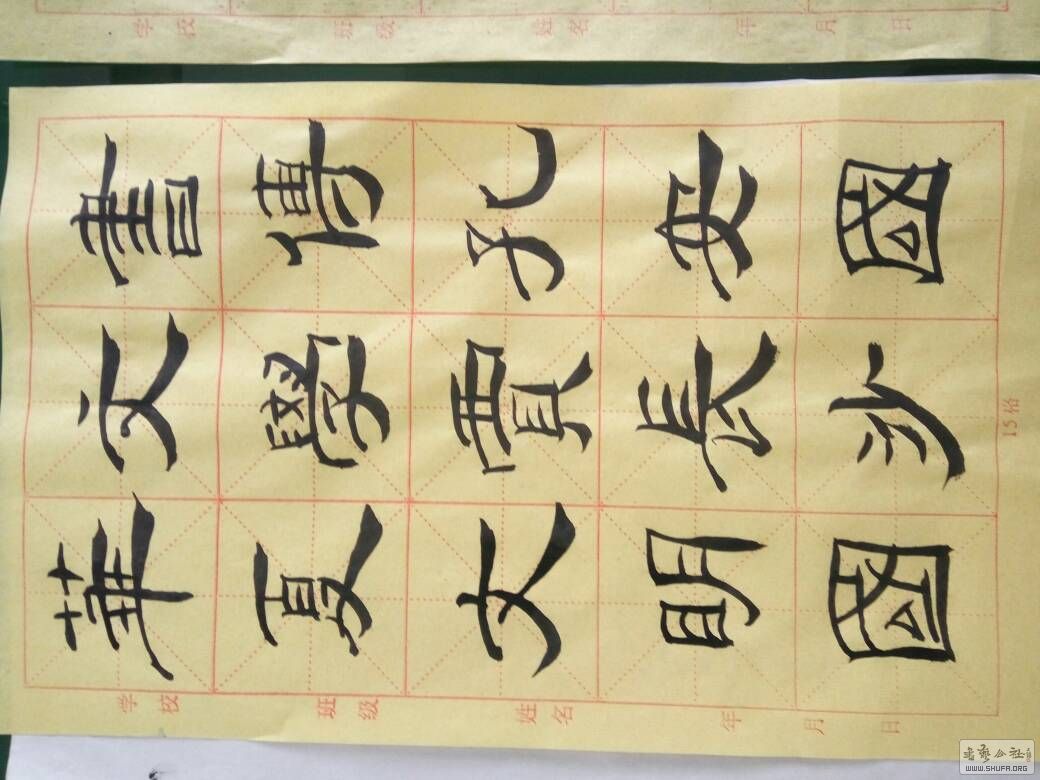 書傳孔安國
文學賈長沙
華夏文明國
学校 班级 姓名 年 月 日
15格
学校 班级 姓名 年 月 日
書藝公社
WWW.SHUFA.ORG